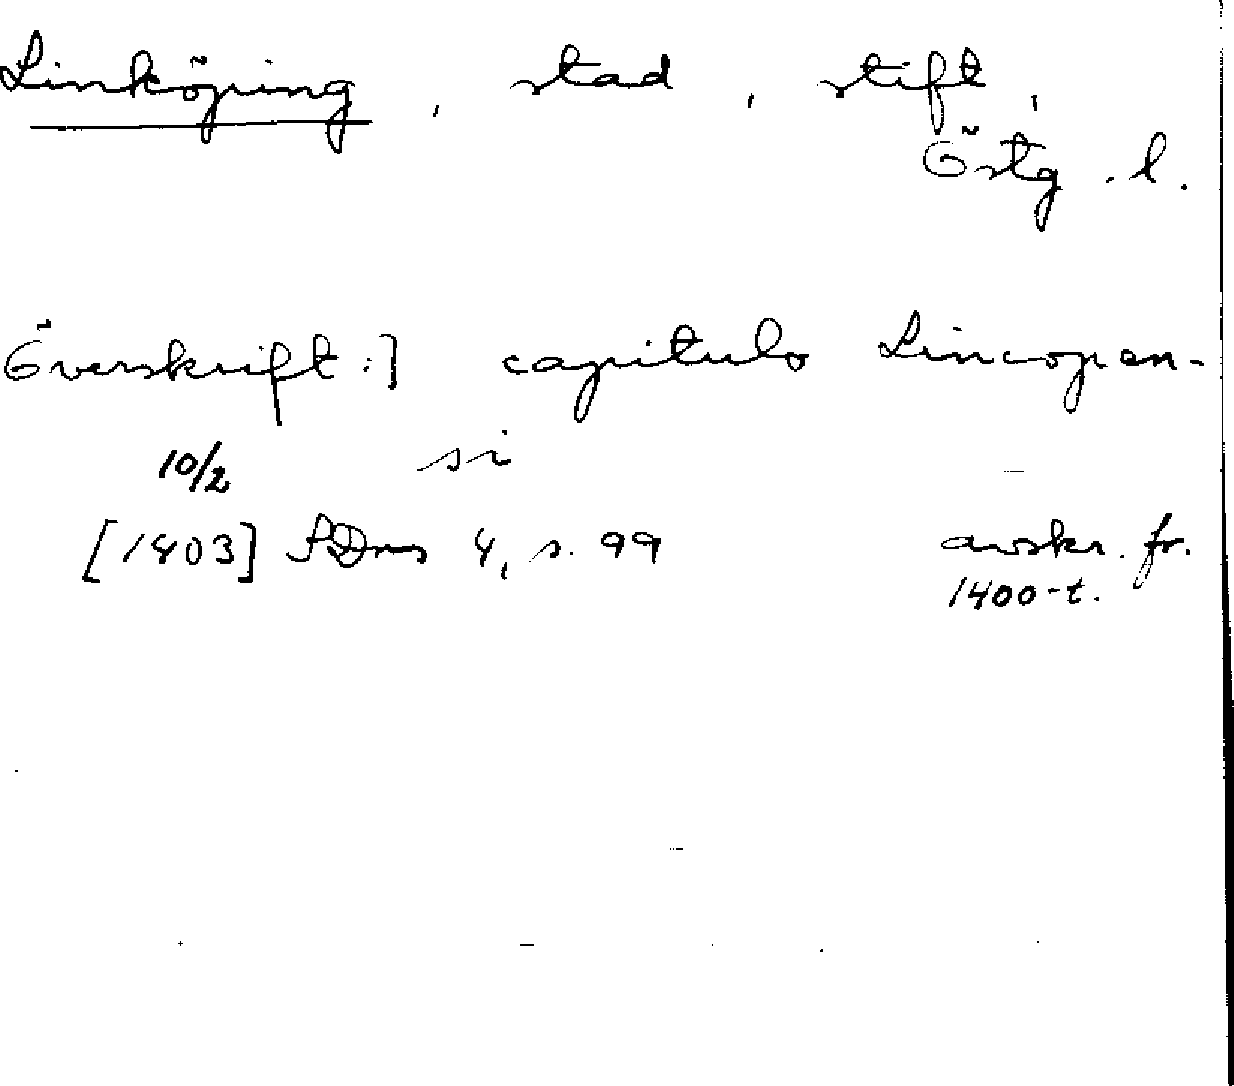 Linköping, stad, stift,
Östg. l.
Överskrift:] capitulo Lincopen-
10/2 si
[1403] SDns 4, s. 99 avskr. fr.
1400-t.